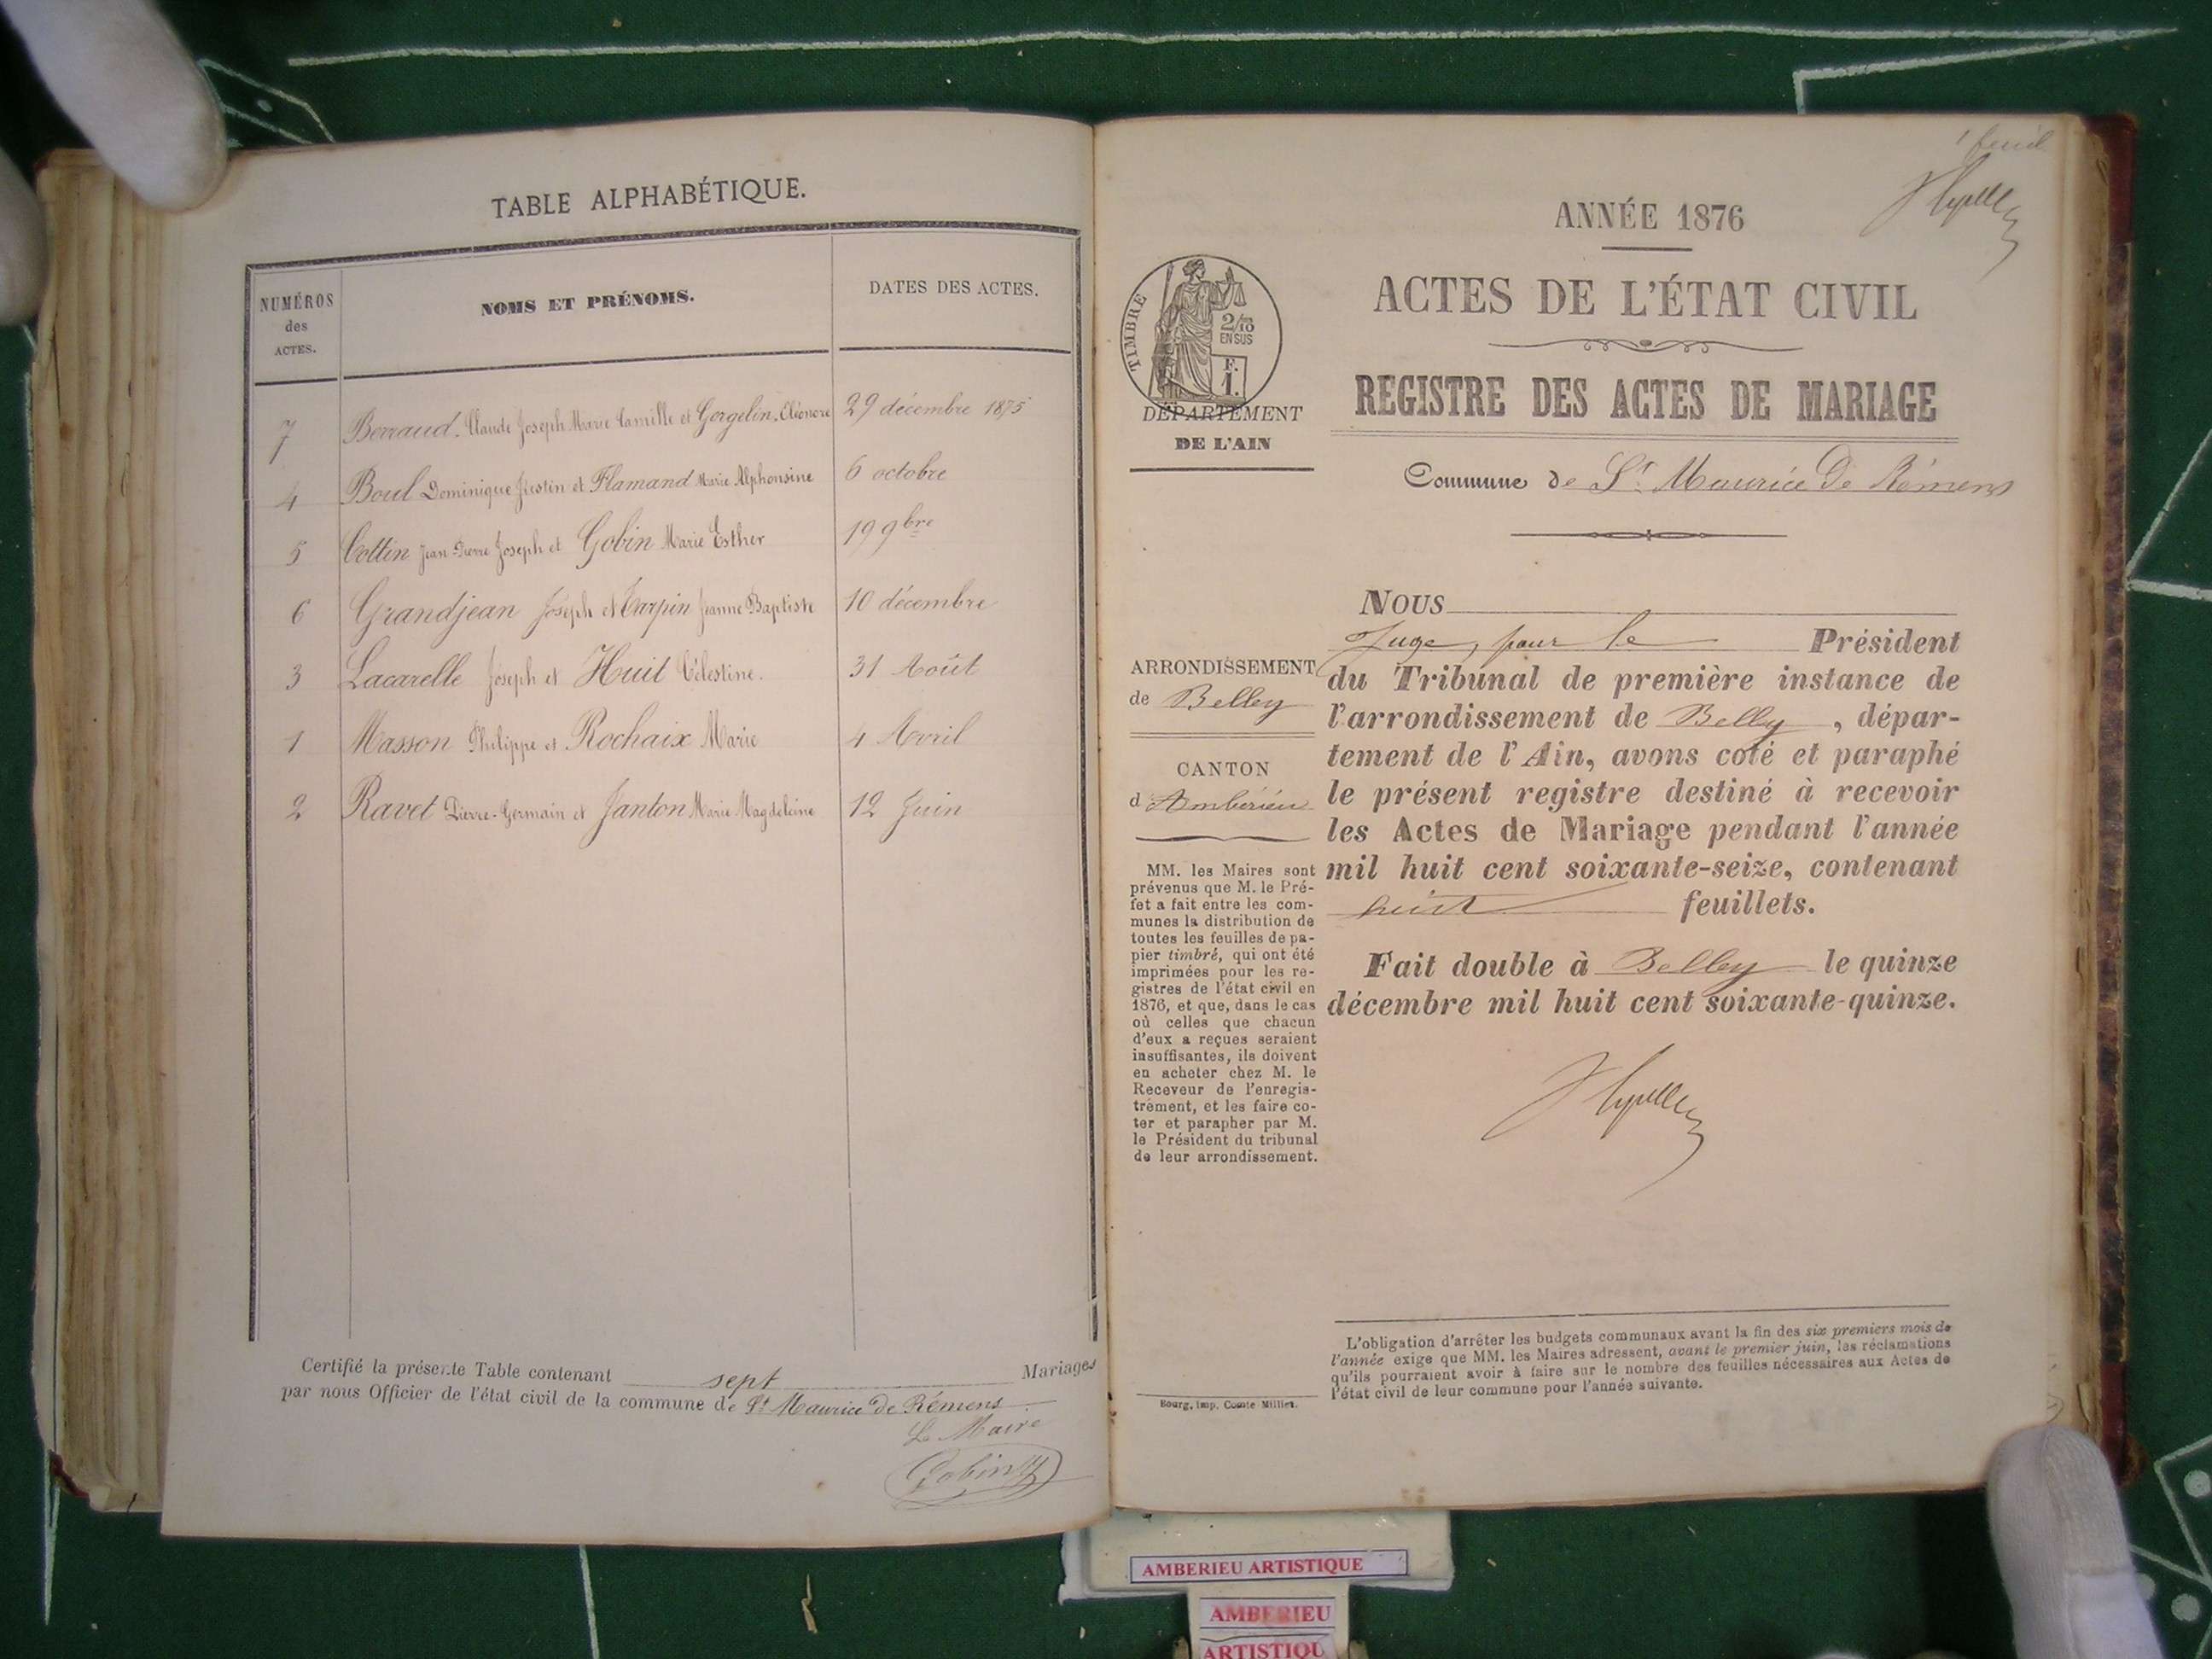 TABLE ALPHABÉTIQUE.
NUMÉROS
des
ACTES.
NOMS ET PRÉNOMS.
DATES DES ACTES.
7 Berraud Claude Joseph Marie Camille et Gorgelin, Eléonore 29 décembre 1875
4 Boul Dominique Justin et Flamand Marie Alphonsine 6 octobre
5 Cottin Jean-Pierre Joseph et Gobin Marie Esther 19 9bre
6 Grandjean Joseph et Tarpin Jeanne Baptiste 10 décembre
3 Lacarelle Joseph et Huit Célestine. 31 Août
1 Masson Philippe et Rochaix Marie 4 Avril
2 Ravet Pierre-Germain et Janton Marie Magdeleine 12 Juin
Certifié la présente Table contenant sept Mariages
par nous Officier de l'état civil de la commune de St Maurice de Rémens
Le Maire
Gobin
ANNÉE 1876
ACTES DE L'ÉTAT CIVIL
REGISTRE DES ACTES DE MARIAGE
Commune de St Maurice De Rémens
TIMBRE
2/10
EN SUS
F.
1.
DÉPARTEMENT
DE L'AIN
ARRONDISSEMENT
de Belley
CANTON
d Ambérieu
MM. les Maires sont
prévenus que M. le Pré-
fet a fait entre les com-
munes la distribution de
toutes les feuilles de pa-
pier timbré, qui ont été
imprimées pour les re-
gistres de l'état civil en
1876, et que, dans le cas
où celles que chacun
d'eux a reçues seraient
insuffisantes, ils doivent
en acheter chez M. le
Receveur de l'enregis-
trement, et les faire co-
ter et parapher par M.
le Président du tribunal
de leur arrondissement.
Bourg, imp. Comte Milliet.
NOUS
Juge, pour le Président
du Tribunal de première instance de
l'arrondissement de Belley, dépar-
tement de l'Ain, avons coté et paraphé
le présent registre destiné à recevoir
les Actes de Mariage pendant l'année
mil huit cent soixante-seize, contenant
huit feuillets.
Fait double à Belley le quinze
décembre mil huit cent soixante-quinze.
L'obligation d'arrêter les budgets communaux avant la fin des six premiers mois de
l'année exige que MM. les Maires adressent, avant le premier juin, les réclamations
qu'ils pourraient avoir à faire sur le nombre des feuilles nécessaires aux Actes de
l'état civil de leur commune pour l'année suivante.
AMBERIEU ARTISTIQUE
AMBERIEU
ARTISTIQU